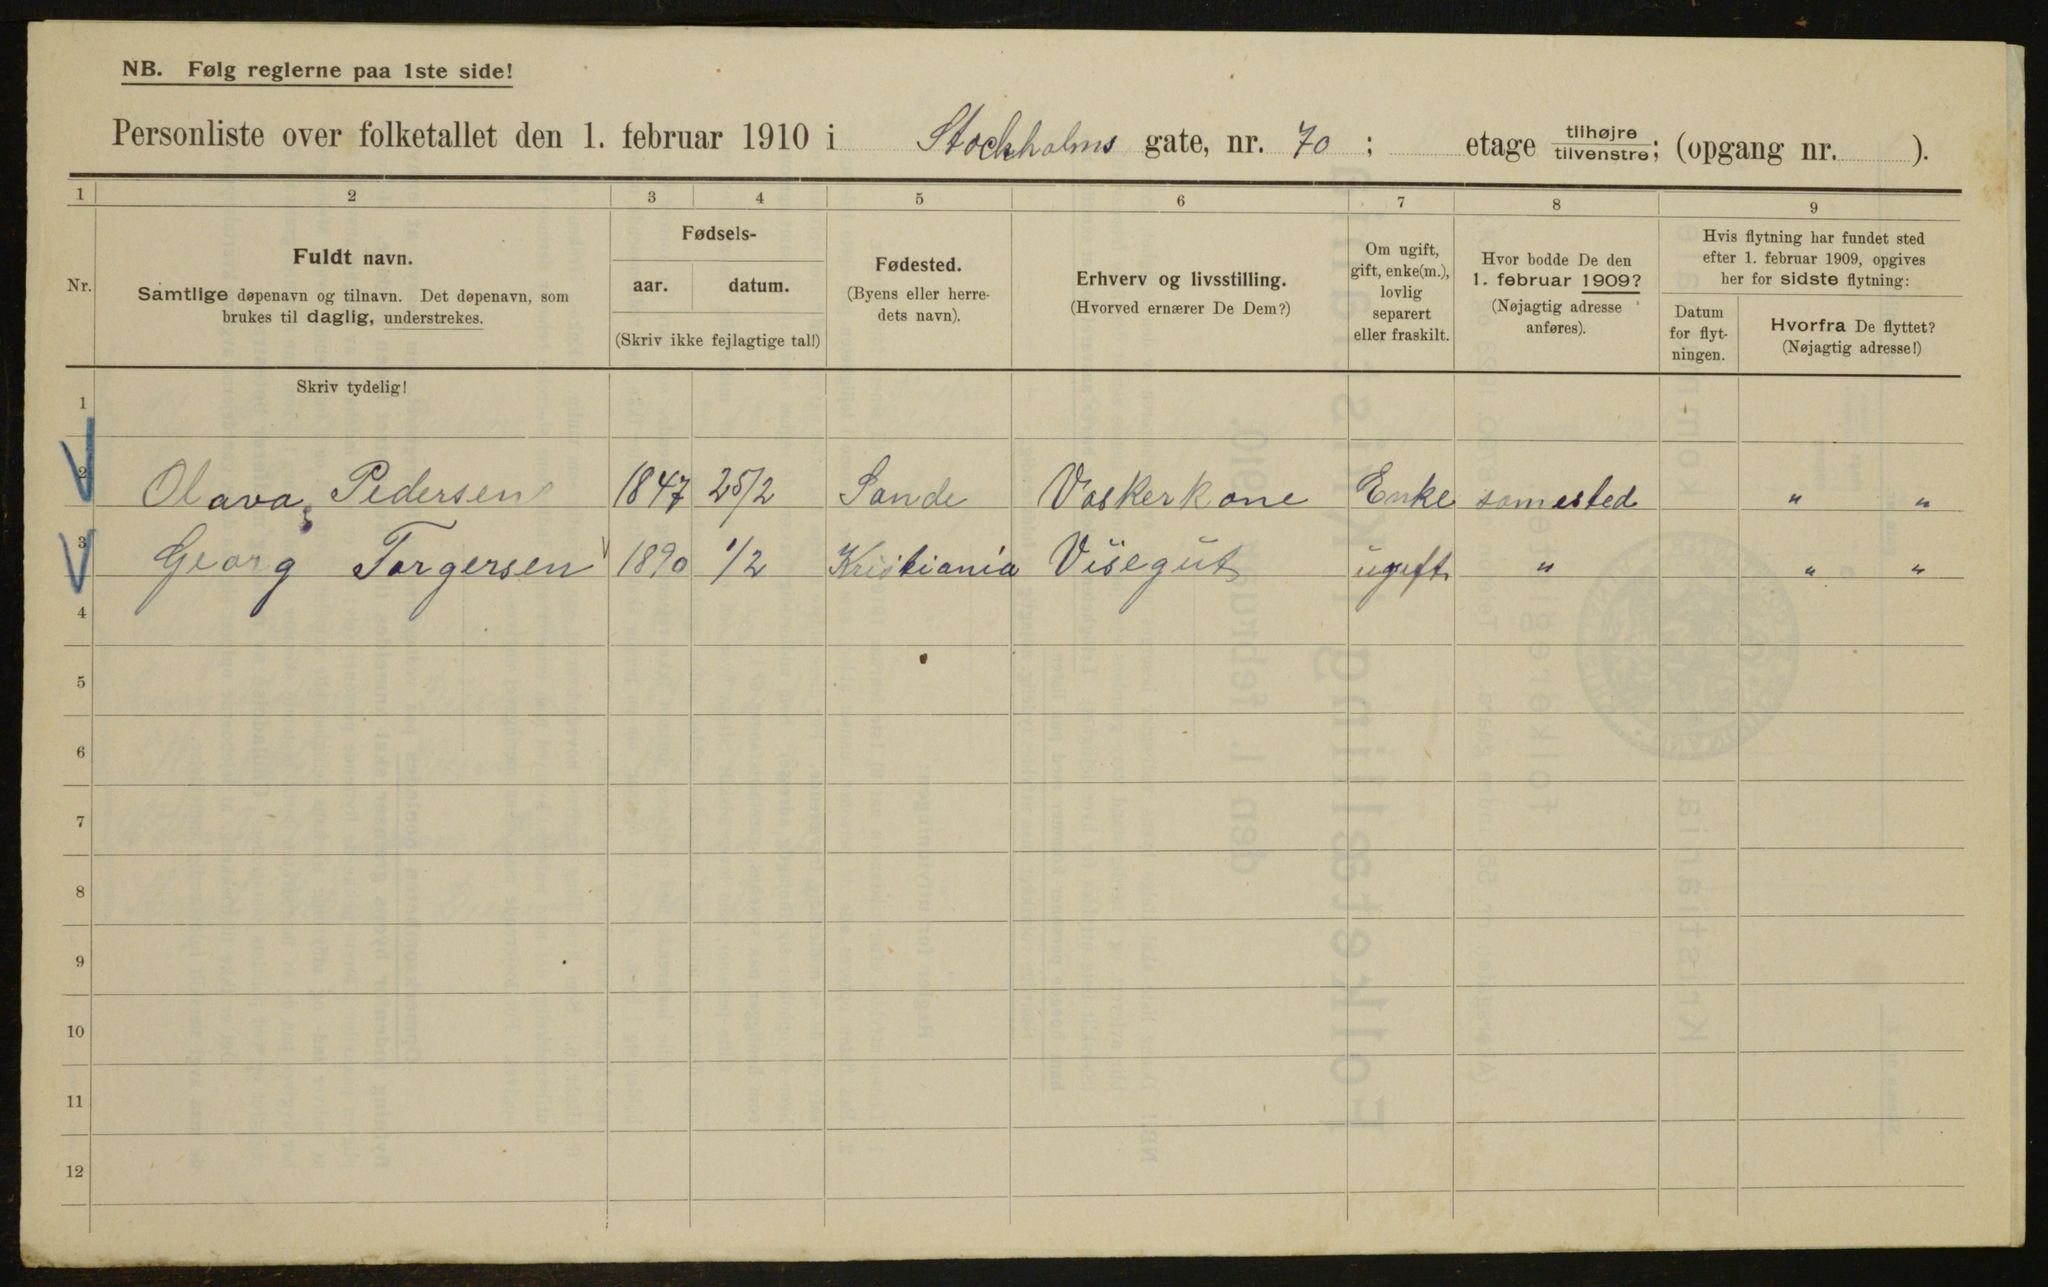 NB. Følg reglerne paa 1ste side!
Personliste over folketallet den 1. februar 1910 i Stockholms gate, nr. 70 ; etage tilhøjre tilvenstre; (opgang nr. ).
1 2 3 4 5 6 7 8 9
Nr.
Fuldt navn.
Samtlige døpenavn og tilnavn. Det døpenavn, som
brukes til daglig, understrekes.
Fødsels-
aar. datum.
(Skriv ikke fejlagtige tal!)
Fødested.
(Byens eller herre-
dets navn).
Erhverv og livsstilling.
(Hvorved ernærer De Dem?)
Om ugift,
gift, enke(m.),
lovlig
separert
eller fraskilt.
Hvor bodde De den
1. februar 1909?
(Nøjagtig adresse
anføres).
Hvis flytning har fundet sted
efter 1. februar 1909, opgives
her for sidste flytning:
Datum
for flyt-
ningen.
Hvorfra De flyttet?
(Nøjagtig adresse!)
Skriv tydelig!
1
2 Olava Pedersen 1847 25/2 Sande Vaskerkone Enke samested " "
3 Georg Torgersen 1890 1/2 Kristiania Visegut ugift " " "
4
5
6
7
8
9
10
11
12